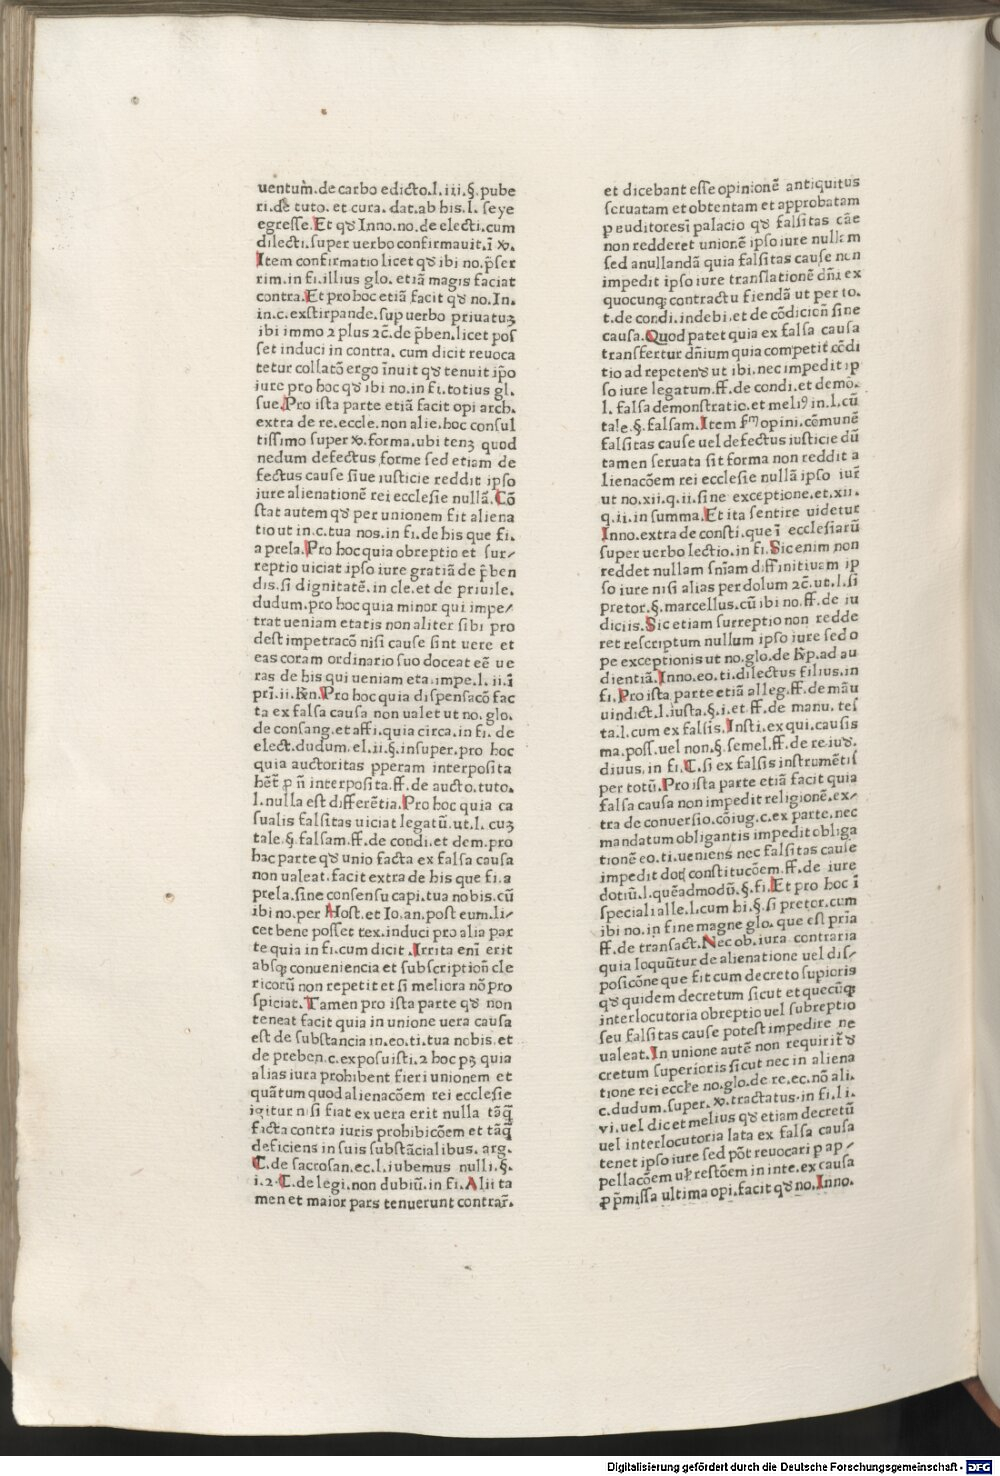 uentum̃.de carbo edicto.l.iii.§.pube
ri.de tuto.et cura.dat.ab his.l.seye
egresse.Et qď Inno.no.de electi.cum
dilecti.super uerbo confirmauit.ĩ xº.
Item confirmatio licet qď ibi no.p̃ser
rim.in fi.illius glo.etiã magis faciat
contra.Et pro hoc etiã facit qď no.In.
in.c.exstirpande.sup uerbo priuatuʒ
ibi immo ⁊ plus ⁊c̃.de p̃ben.licet pos
set induci in contra.cum dicit reuoca
tetur collatõ ergo ĩnuit qď tenuit ip̃o
iure pro hoc qď ibi no.in fi.totius gl.
sue.Pro ista parte etiã facit opi arch.
extra de re.eccle.non alie.hoc consul
tissimo super xº.forma.ubi tenʒ quod
nedum defectus forme sed etiam de
fectus cause siue iusticie reddit ipso
iure alienationẽ rei ecclesie nullã.Cõ
stat autem qď per unionem fit aliena
tio ut in.c.tua nos.in fi.de his que fi.
a prela.Pro hoc quia obreptio et sur⸗
reptio uiciat ipso iure gratiã de p̃ben
dis.si dignitatẽ.in cle.et de priuile.
dudum.pro hoc quia minor qui impe⸗
trat ueniam etatis non aliter sibi pro
dest impetracõ nisi cause sint uere et
eas coram ordinario suo doceat eẽ ue
ras de his qui ueniam eta.impe.l.ii.ĩ
pri.ii.Rñ.Pro hoc quia dispensacõ fac
ta ex falsa causa non ualet ut no.glo.
de consang.et affi.quia circa.in fi.de
elect.dudum.el.ii.§.insuper.pro hoc
quia auctoritas pperam interposita
hẽt̃ ꝑ ñ interposita.ff.de aucto.tuto.
l.nulla est differẽtia.Pro hoc quia ca
sualis falsitas uiciat legatũ.ut.l.cuʒ
tale.§.falsam.ff.de condi.et dem.pro
hac parte qď unio facta ex falsa causa
non ualeat.facit extra de his que fi.a
prela.sine consensu capi.tua nobis.cũ
ibi no.per Host.et Io.an.post eum.li⸗
cet bene posset tex.induci pro alia par
te quia in fi.cum dicit.Irrita eni erit
absqꝫ conueniencia et subscription̄ cle
ricorũ non repetit et si meliora nõ pro
spiciat.Tamen pro ista parte qď non
teneat facit quia in unione uera causa
est de substancia in.eo.ti.tua nobis.et
de preben.c.exposuisti.⁊ hoc pʒ quia
alias iura prohibent fieri unionem et
quãtum quod alienacõem rei ecclesie
igitur nisi fiat ex uera erit nulla tãqꝫ̃
facta contra iuris prohibicõem et tãqꝫ̃
deficiens in suis substãcialibus.arg.
C.de sacrosan.ec.l.iubemus nulli.§.
i.⁊.C.de legi.non dubiũ.in fi.Alii ta
men et maior pars tenuerunt contrar̃.
et dicebant esse opinionẽ antiquitus
seruatam et obtentam et approbatam
p euditoresi palacio qď falsitas cãe
non redderet unionẽ ipso iure nullam
sed anullandã quia falsitas cause non
impedit ipso iure translationẽ dñi ex
quocunqꝫ contractu fiendã ut per to.
t.de condi.indebi.et de cõdicioñ sine
causa.Quod patet quia ex falsa causa
transfertur dñium quia competit cõdi
tio ad repetenď ut ibi.nec impedit ip
so iure legatum.ff.de condi.et demõ.
l.falsa demonstratio.et meliꝰ in.l.cũ
tale.§.falsam.Item fᵐ opini.cõmunẽ
falsitas cause uel defectus iusticie dũ
tamen seruata sit forma non reddit a
lienacõem rei ecclesie nullã ipso iur̃
ut no.xii.q.ii.sine exceptione.et.xii.
q.ii.in summa.Et ita sentire uidetur
Inno.extra de consti.que ĩ ecclesiarũ
super uerbo lectio.in fi.Sic enim non
reddet nullam sniam diffinitiuam ip
so iure nisi alias per dolum ⁊c̃.ut.l.si
pretor.§.marcellus.cũ ibi no.ff.de iu
diciis.Sic etiam surreptio non redde
ret rescriptum nullum ipso iure sed o
pe exceptionis ut no.glo.de R̃p.ad au
dientiã.Inno.eo.ti.dilectus filius.in
fi.Pro ista parte etiã alleg.ff.de mãu
uindict.l.iusta.§.i.et ff.de manu.tes
ta.l.cum ex falsis.Insti.ex qui.causis
ma.poss.uel non.§.semel.ff.de re iuď.
diuus.in fi.C.si ex falsis instrumẽtis
per totũ.Pro ista parte etiã facit quia
falsa causa non impedit religionẽ.ex⸗
tra de conuersio.cõiug.c.ex parte.nec
mandatum obligantis impedit obliga
tionẽ eo.ti.ueniens nec falsitas cause
impedit dot̃ constitucõem.ff.de iure
dotiũ.l.quẽadmodũ.§.fi.Et pro hoc ĩ
speciali alle.l.cum hi.§.si pretor.cum
ibi no.in fine magne glo.que est pria
ff.de transact.Nec ob.iura contraria
quia loquũtur de alienatione uel dis⸗
posicõne que fit cum decreto supioris
qď quidem decretum sicut et quecũqꝫ
interlocutoria obreptio uel subreptio
seu falsitas cause potest impedire ne
ualeat.In unione autẽ non requirit̃ď
cretum superioris sicut nec in aliena
tione rei eccle no.glo.de re.ec.nõ ali.
c.dudum.super.xº.tractatus.in fi.li.
vi.uel dic et melius qď etiam decretũ
uel interlocutoria lata ex falsa causa
tenet ipso iure sed põt reuocari p ap⸗
pellacõem uł restõem in inte.ex causa
ꝑ p̃missa ultima opi.facit qď no.Inno.
Digitalisierung gefördert durch die Deutsche Forschungsgemeinschaft - DFG